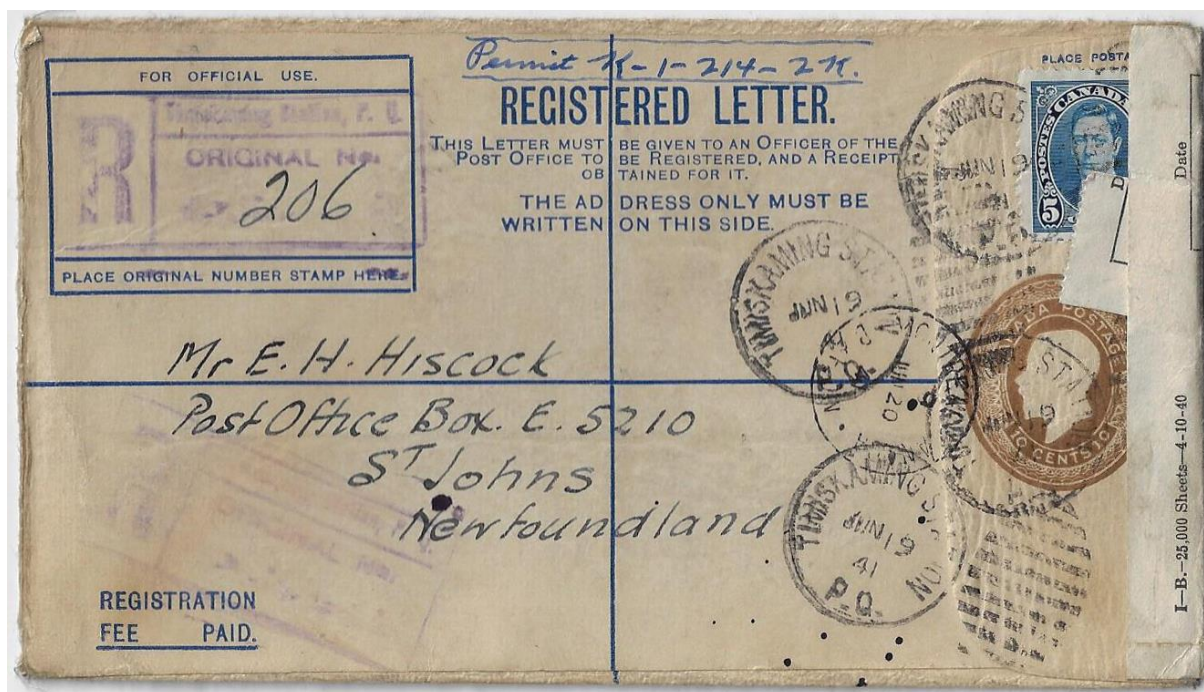 Permit K-1-214-2K.
FOR OFFICIAL USE.
R
Timiskaming Station, P. Q.
ORIGINAL No.
206
PLACE ORIGINAL NUMBER STAMP HERE.
REGISTERED LETTER.
THIS LETTER MUST BE GIVEN TO AN OFFICER OF THE
POST OFFICE TO BE REGISTERED, AND A RECEIPT
OBTAINED FOR IT.
THE ADDRESS ONLY MUST BE
WRITTEN ON THIS SIDE.
PLACE POSTA
POSTES CANADA
5
TIMISKAMING STATION
JUN 19
41
P.Q.
TIMISKAMING STATION
JUN 19
JUN 20
CANADA POSTAGE
10 CENTS 10
STA
JUN 19
TIMISKAMING STATION
JUN 19
41
P.Q.
Mr E. H. Hiscock
Post Office Box. E. 5210
St Johns
Newfoundland
REGISTRATION
FEE PAID.
Date
I—B.—25,000 Sheets—4-10-40